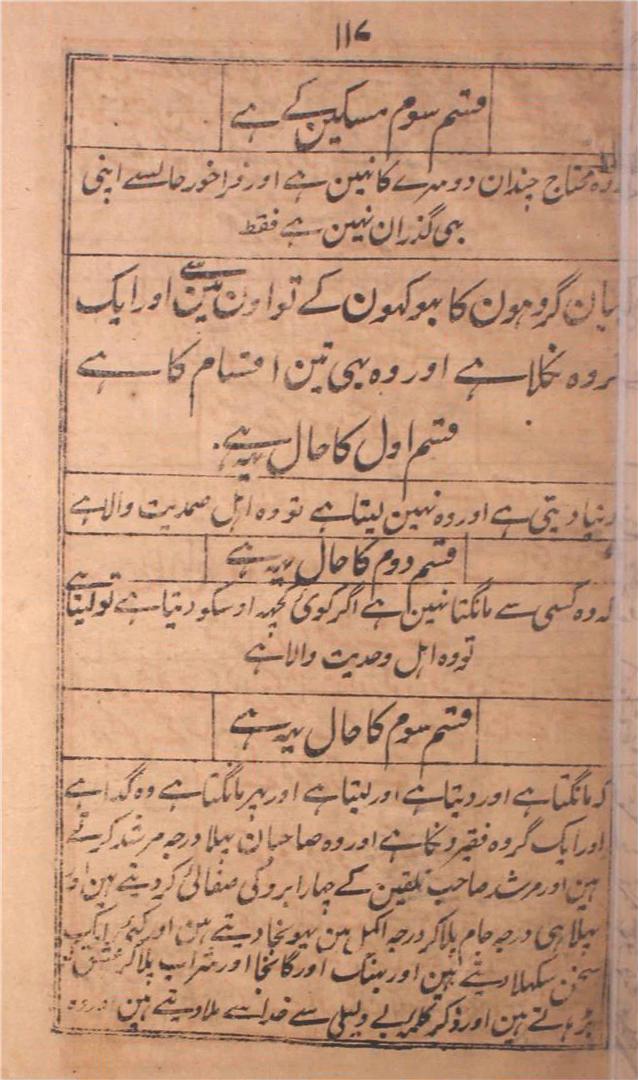 ۱۱۷
قسم سوم مسکین کے ہے
وہ محتاج چندان دوسرے کا نہین ہے اور فراخور حال سے اپنی
بہی گذران نہین ہے فقط
بیان گروہون کا بہوکہون کے تو اون مین سے اور ایک
گروہ نکلا ہے اور وہ بہی تین اقسام کا ہے
قسم اول کا حال یہہ ہے
دنیا دیتی ہے اور وہ نہین لیتا ہے تو وہ اہل صمدیت والا ہے
قسم دوم کا حال یہہ ہے
کہ وہ کسی سے مانگتا نہین ہے اگر کوئی کچہہ اوسکو دیتا ہے تو لیتا ہے
تو وہ اہل وحدیت والا ہے
قسم سوم کا حال یہہ ہے
کہ مانگتا ہے اور دیتا ہے اور لیتا ہے اور پہر مانگتا ہے وہ گدا ہے
اور ایک گروہ فقیرونکا ہے اور وہ صاحبان پہلا درجہ مرشد کرتے
ہین اور مرشد صاحب تلقین کے چہار ابرو کی صفائی کر دیتے ہین اور
پہلا ہی درجہ جام پلا کر درجہ اکمل مین پہونچا دیتے ہین اور کئی ایک
سخن سکہلا دیتے ہین اور بہنگ اور گانجا اور شراب پلا کر عشق
بڑہاتے ہین اور ذکر کلمہ بے دلیلی سے خدا سے ملا دیتے ہین اور وہ